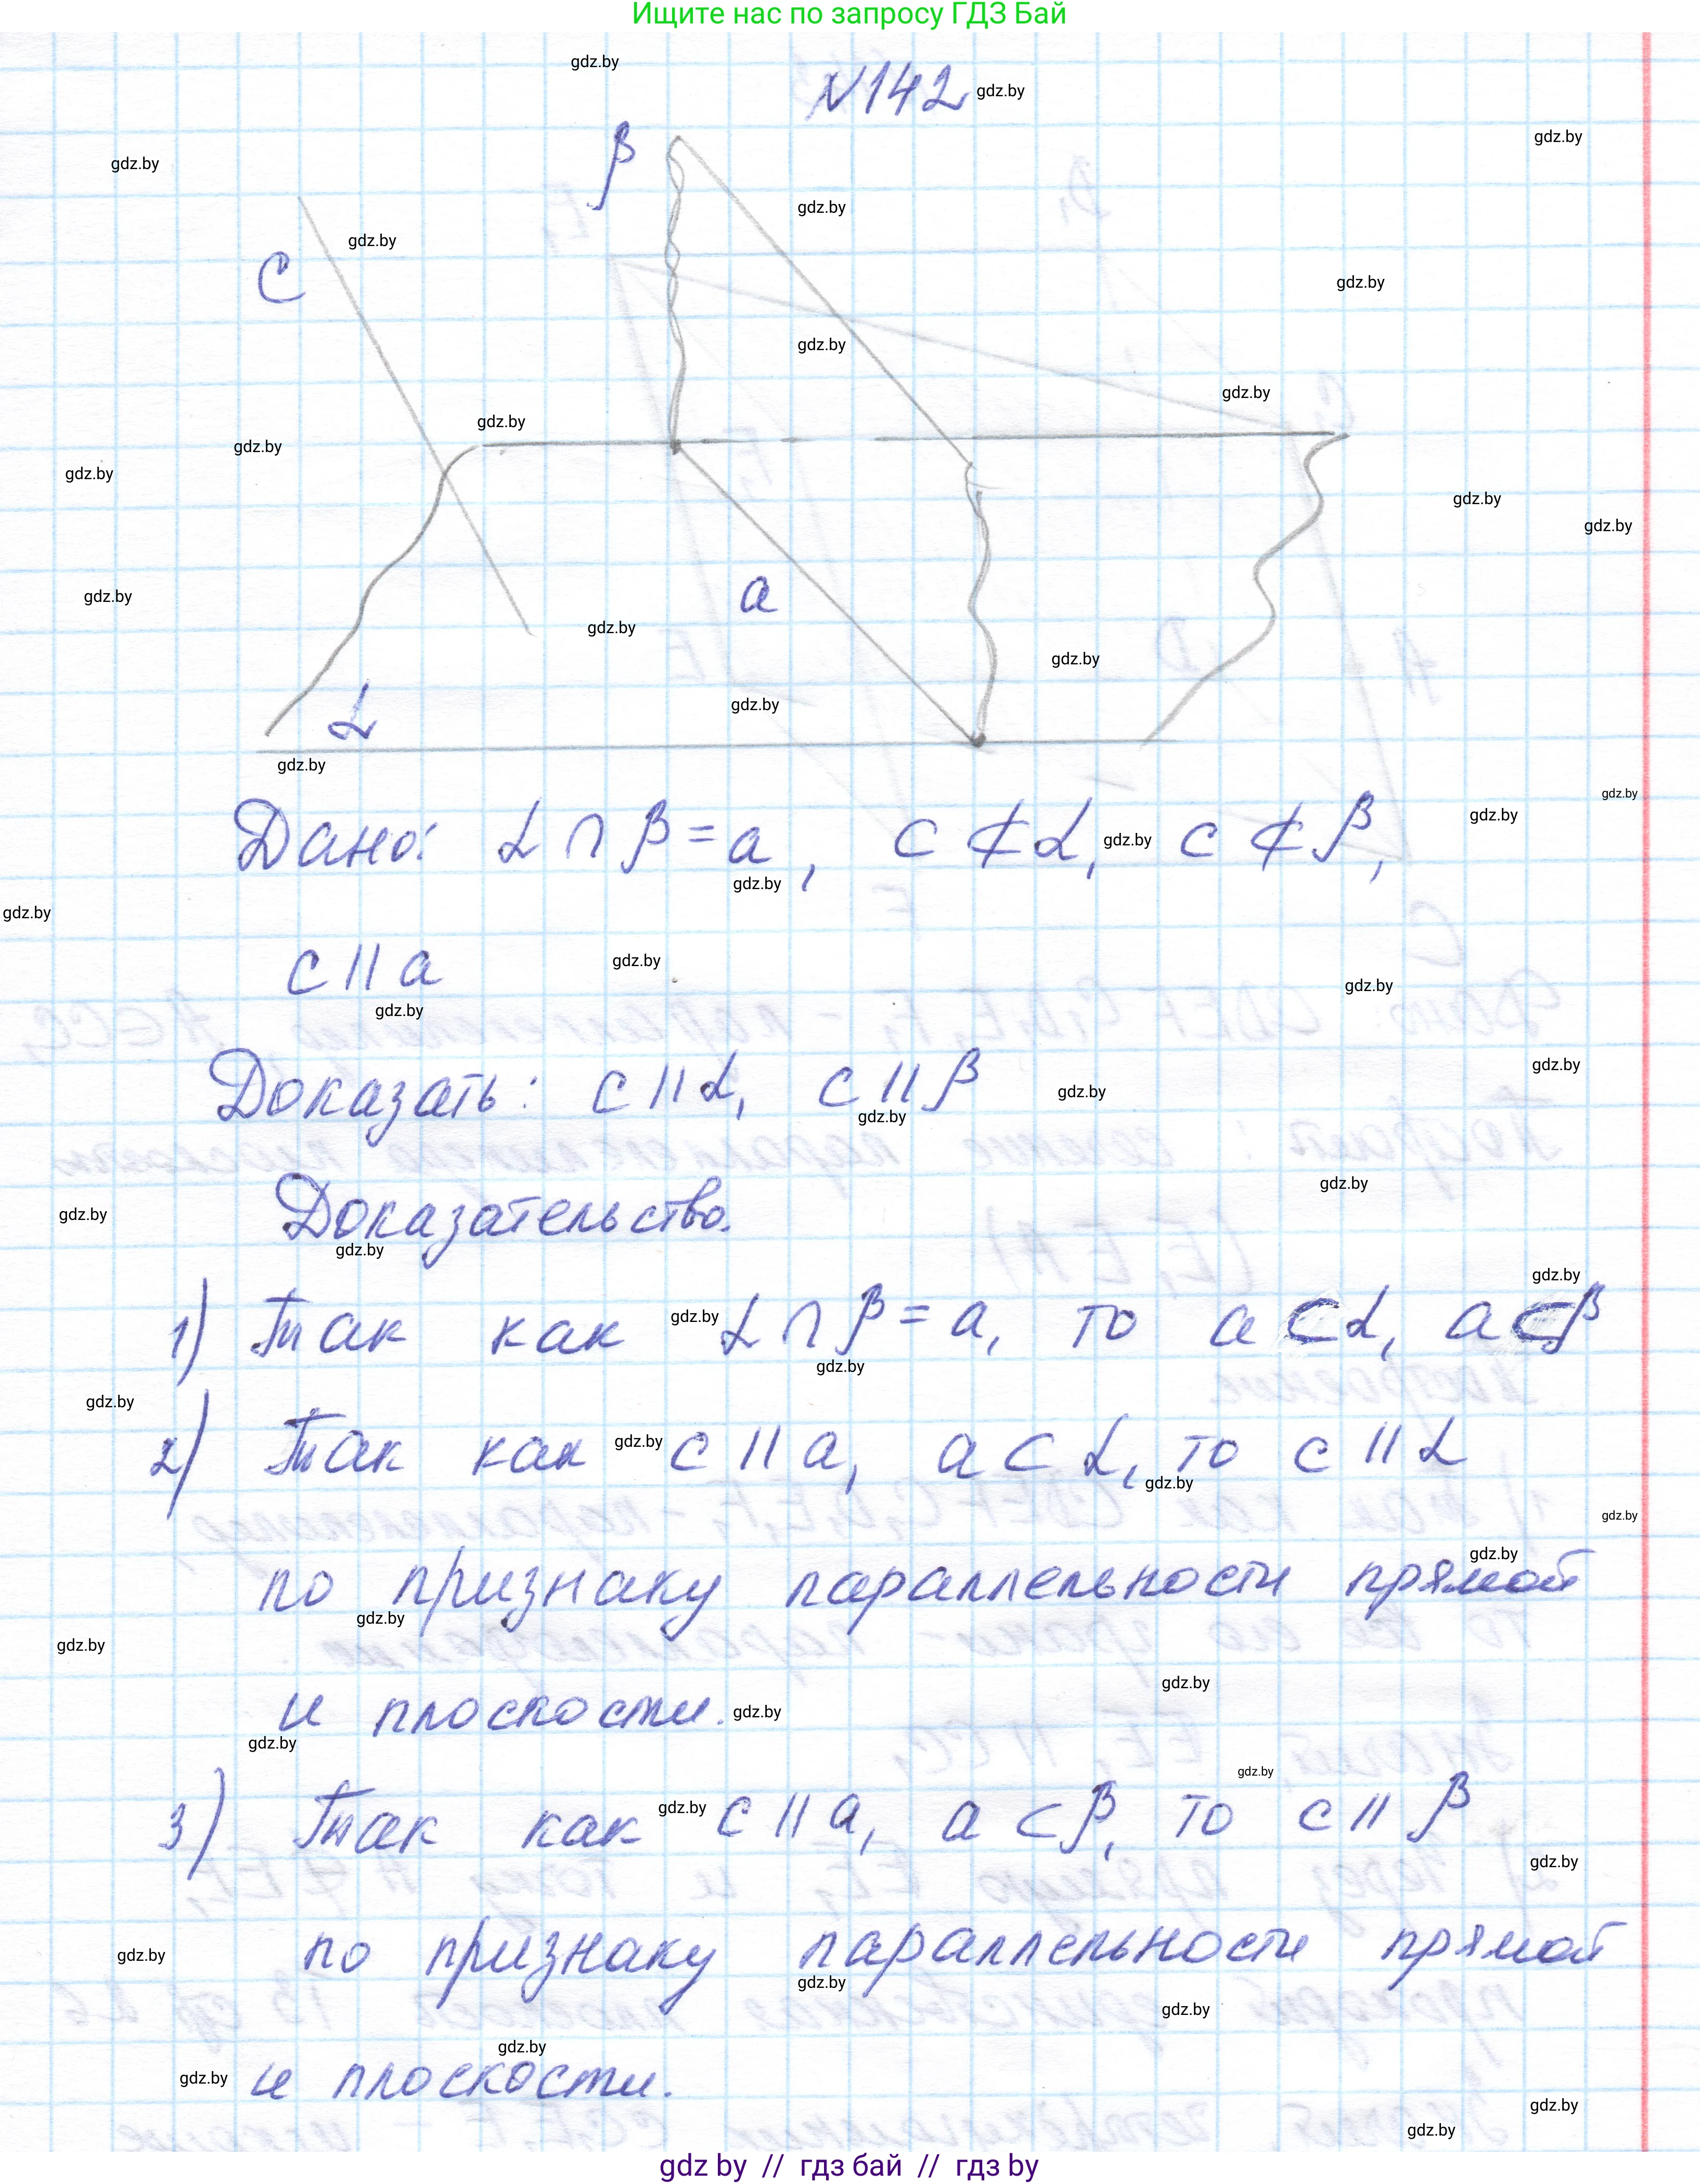 Ищите нас по запросу ГДЗ Бай
№142
β
c
a
α
Дано: α ∩ β = a, c ⊄ α, c ⊄ β,
c || a
Доказать: c || α, c || β
Доказательство.
1) Так как α ∩ β = a, то a ⊂ α, a ⊂ β
2) Так как c || a, a ⊂ α, то c || α
по признаку параллельности прямой
и плоскости.
3) Так как c || a, a ⊂ β, то c || β
по признаку параллельности прямой
и плоскости.
gdz.by
gdz by // гдз бай // гдз by